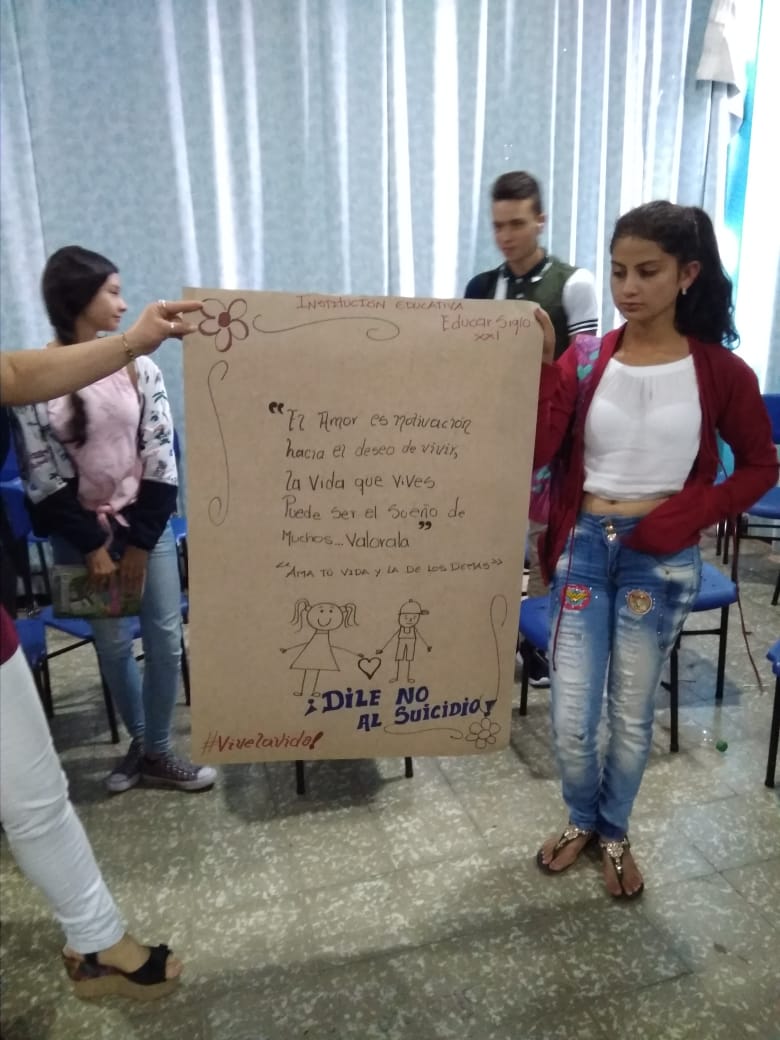 INSTITUCIÓN EDUCATIVA
Educar Siglo
XXI
"El Amor es motivación
hacia el deseo de vivir,
la vida que vives
Puede ser el sueño de
Muchos... Valorala"
"AMA TU VIDA Y LA DE LOS DEMAS"
¡DiLE NO
AL SuiCidio!
#Vivelavida!